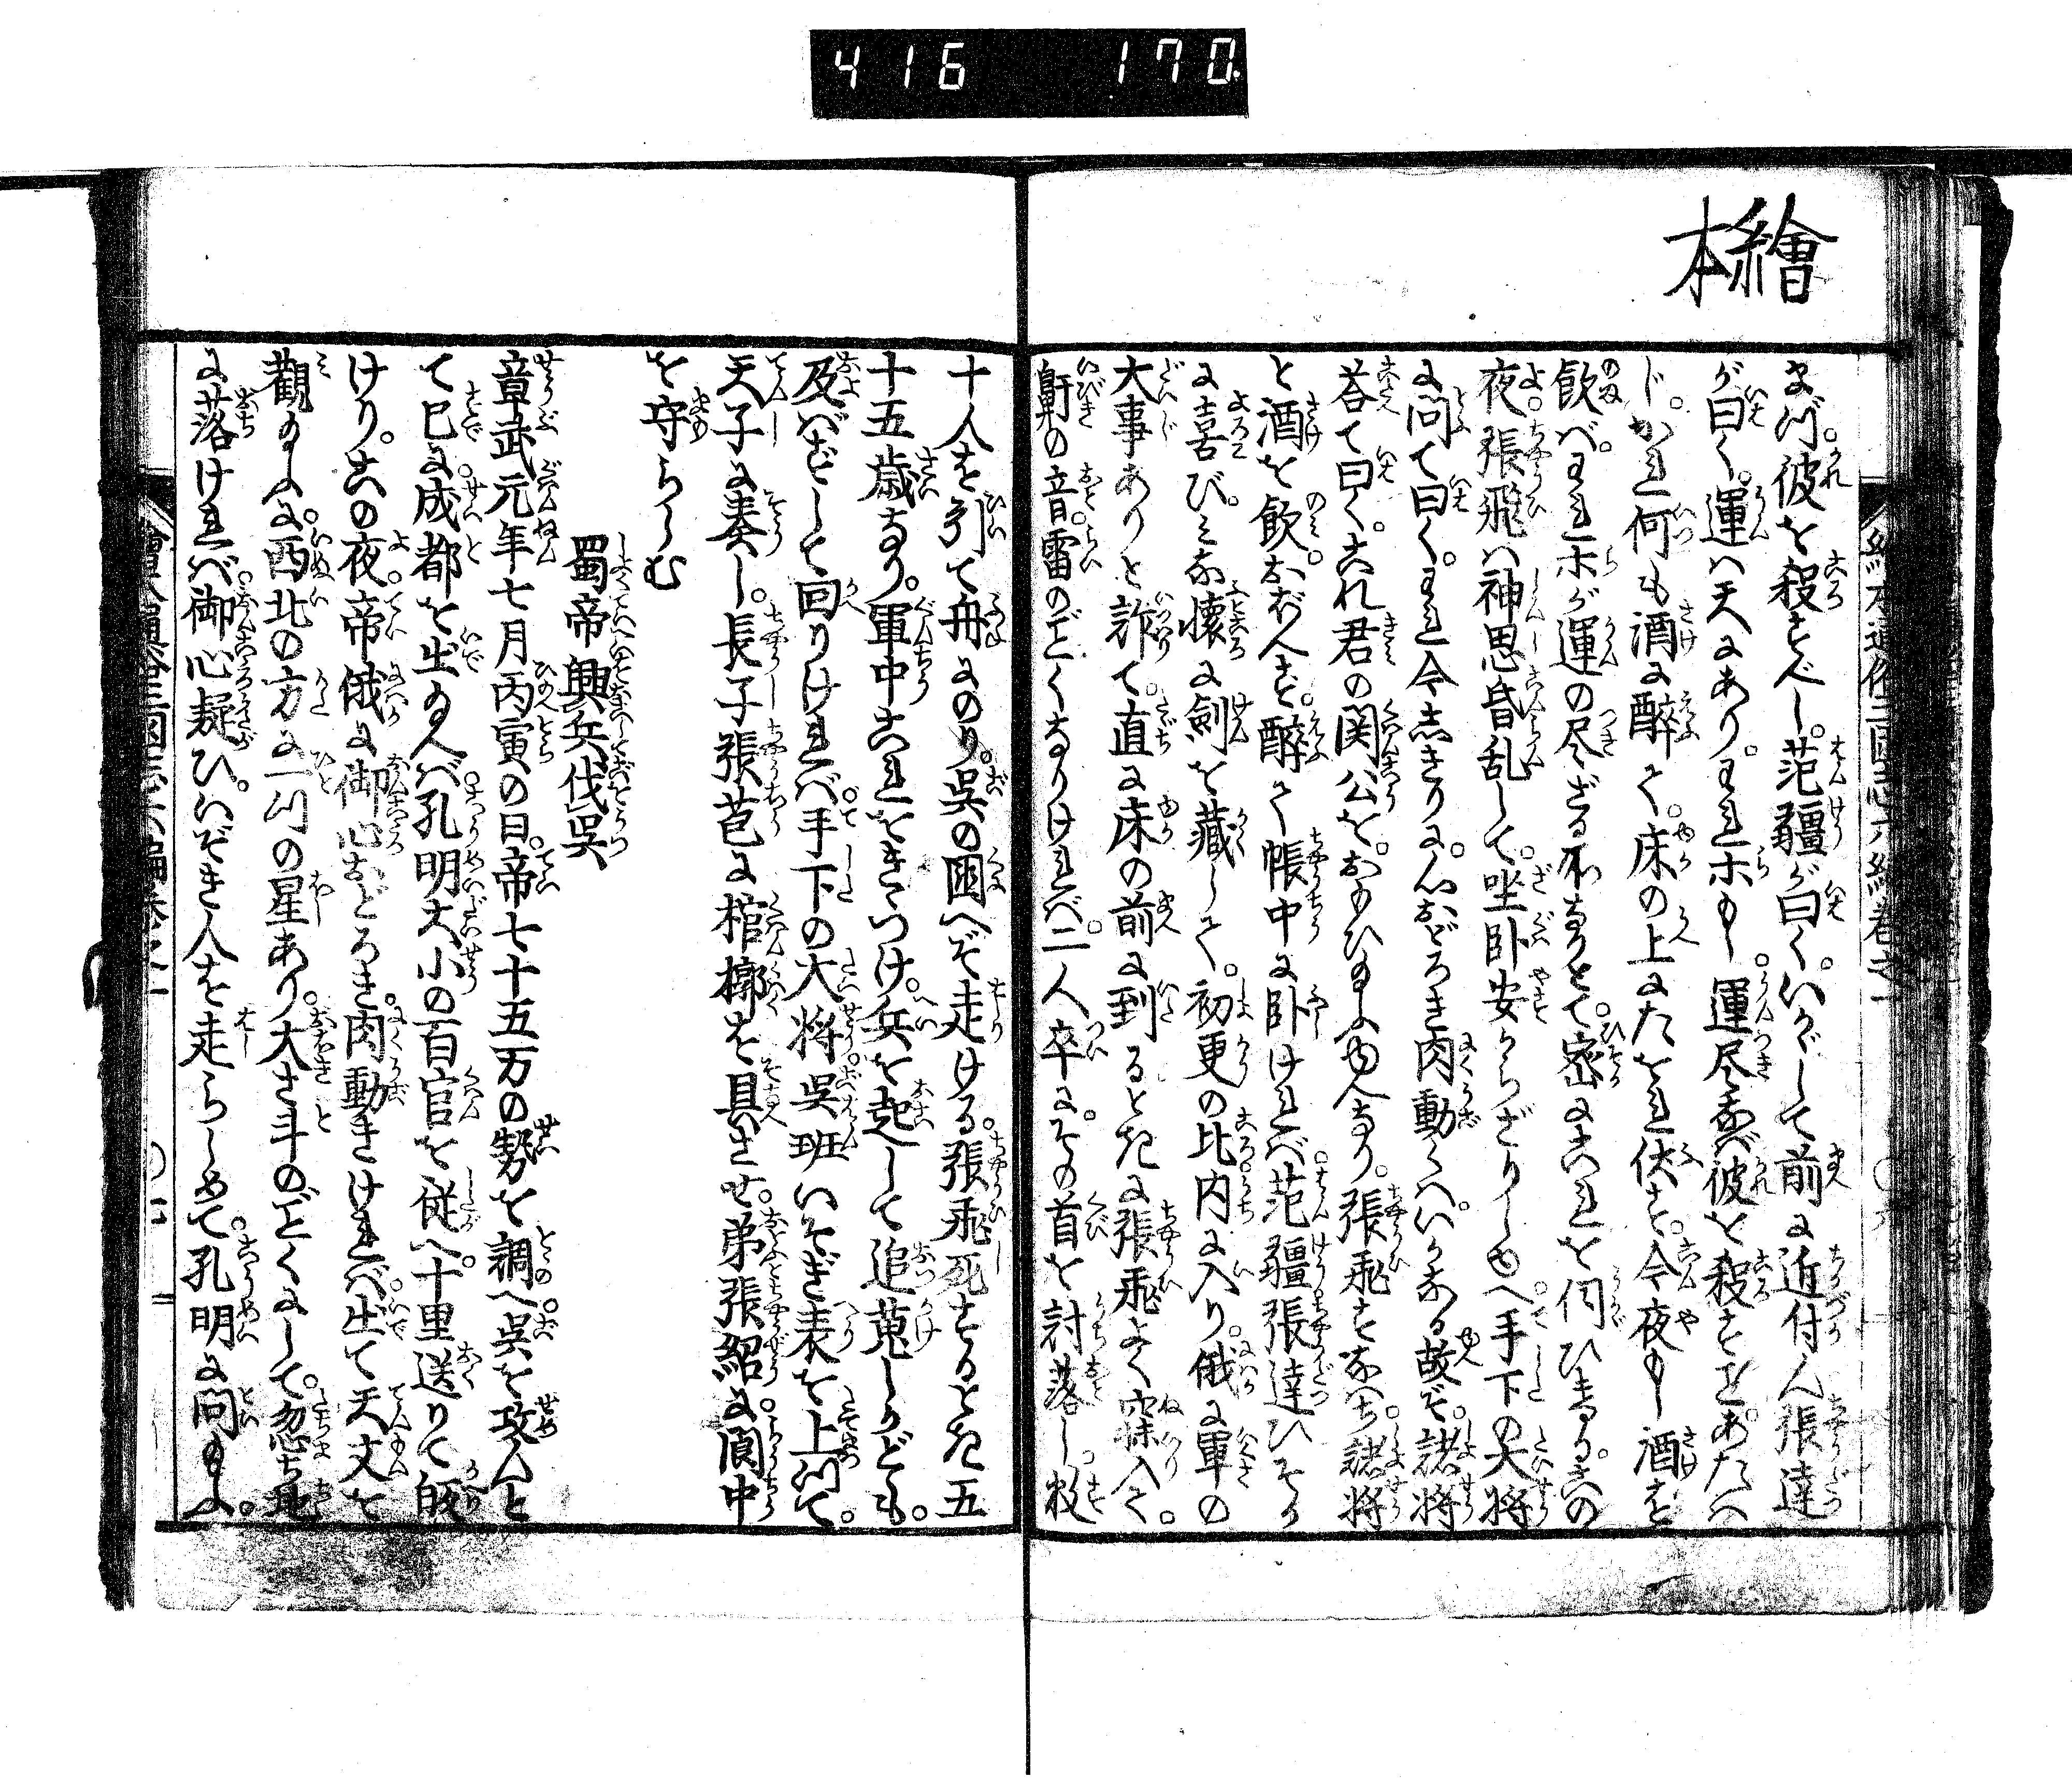 416 170
繪本
まづ彼を殺すべし。范疆が曰く。いかゞして前に近付ん張達
が曰く。運ハ天にあり。われホもし運尽ずば彼を殺すを得あたへ
じ。かれ何も酒に酔て床の上にたをれ伏す。今夜もし酒を
飲べ。われホが運の尽ざる所なりとて。密にこれを伺ひける。この
夜。張飛ハ神思昏乱して。坐卧安からざりしゆへ。手下の大将
に問て曰く。われ今しきりに。心おどろき肉動くハ。いかなる故ぞ。諸将
荅て曰く。これ君の関公を。おもひ給ふゆへなり。張飛すなハち諸将
と酒を飲。おぼへず。酔て帳中に卧けれバ。范疆張達ひそか
に喜び。ミな懐に剣を蔵して。初更の比内に入り。俄に軍の
大事ありと詐て。直に床の前に到るときに張飛よく寐入て。
鼾の音。雷のごとくなりけれバ。二人卒に。その首を討落し。数
十人を引て舟にのり。呉の国へぞ走ける。張飛死するとき五
十五歳なり。軍中これをきゝつけ。兵を起して追蒐しかども。
及バずして回りけれバ。手下の大将呉班いそぎ表を上つて。
天子に奏し。長子張苞に棺槨を具させ。弟張紹に閬中
を守らしむ
蜀帝興兵伐呉
章武元年七月丙寅の日。帝七十五万の勢を調へ。呉を攻んと
て已に。成都を出玉へバ。孔明大小の百官を従へ。十里送りて皈
けり。この夜。帝俄に御心おどろき。肉動きけれバ。出て天文を
觀玉ふに。西北の方に一つの星あり。大さ斗のごとくにして。忽ち地
に落けれバ。御心疑ひ。いそぎ人を走らしめて。孔明に問玉ふ。